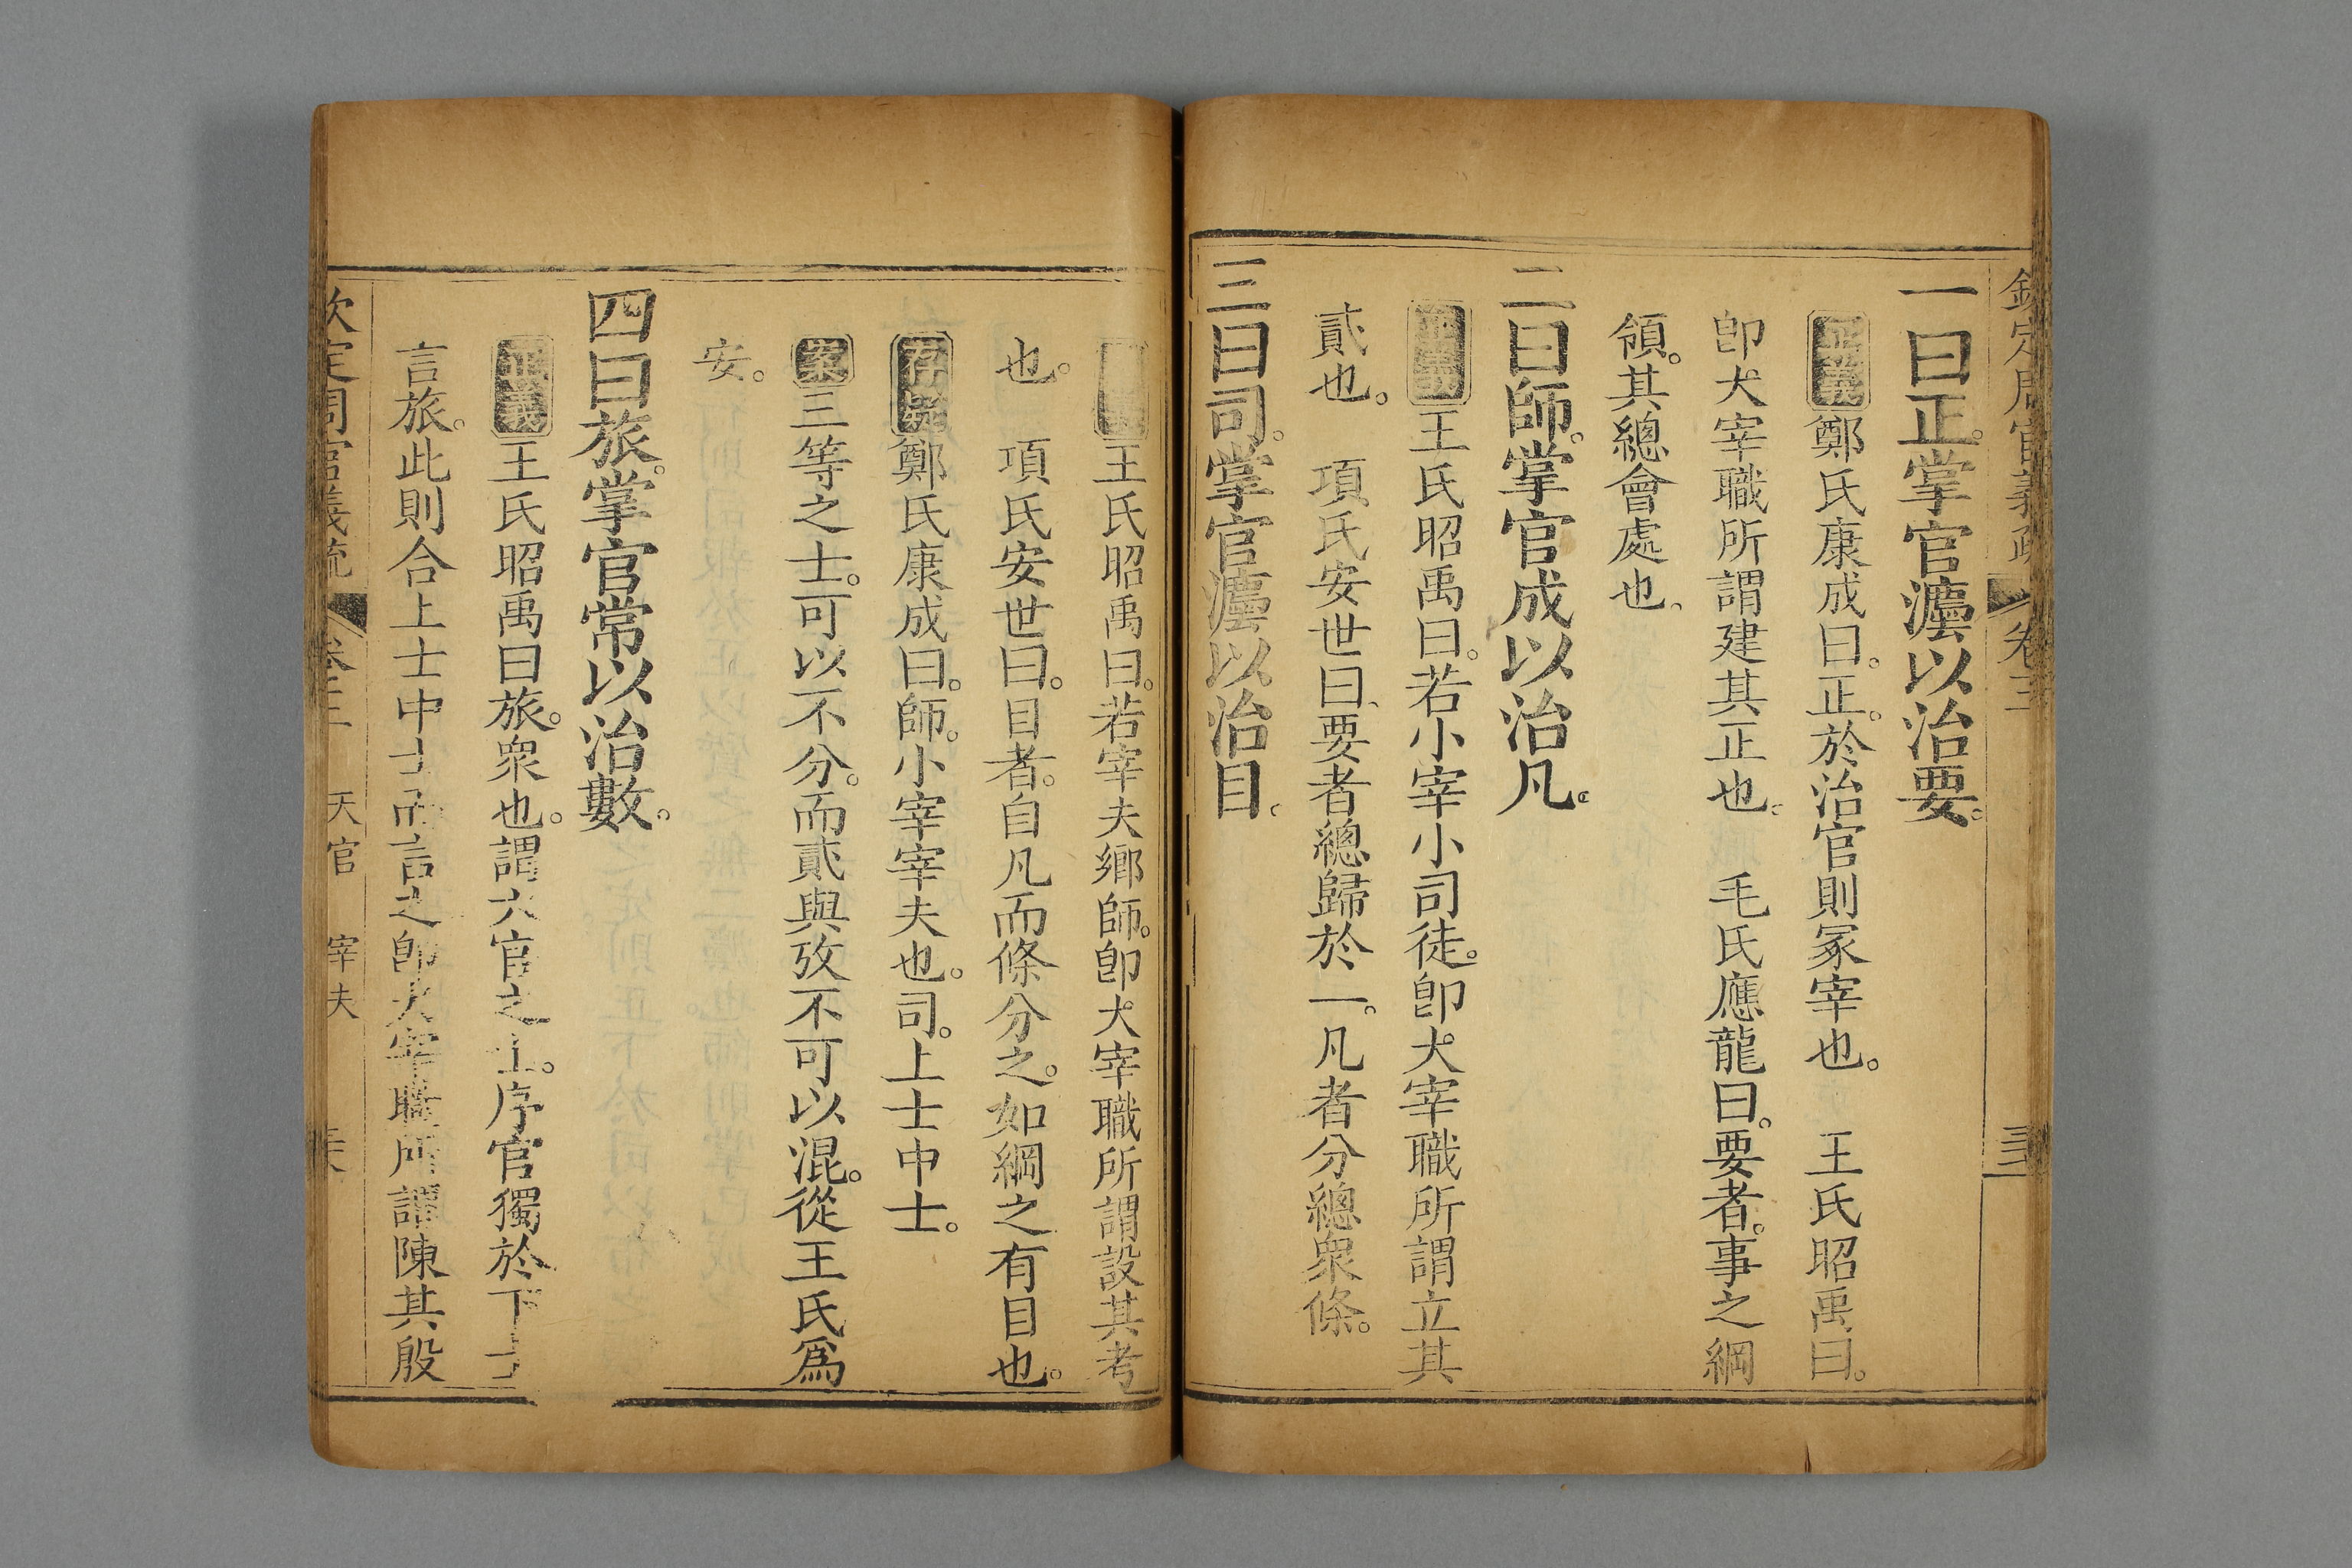 欽定周官義疏 卷三
一曰正。掌官灋以治要。
正義鄭氏康成曰。正。於治官則冢宰也。 王氏昭禹曰。
卽大宰職所謂建其正也。 毛氏應龍曰。要者。事之綱
領。其總會處也。
二曰師。掌官成以治凡。
正義王氏昭禹曰。若小宰小司徒。卽大宰職所謂立其
貳也。 項氏安世曰。要者總歸於一。凡者分總衆條。
三曰司。掌官灋以治目。
王氏昭禹曰。若宰夫鄉師。卽大宰職所謂設其考
也。 項氏安世曰。目者。自凡而條分之。如綱之有目也。
存疑鄭氏康成曰。師。小宰宰夫也。司。上士中士。
案三等之士。可以不分。而貳與攷不可以混。從王氏爲
安。
四曰旅。掌官常以治數。
正義王氏昭禹曰旅。衆也。謂六官之士。序官獨於下士
言旅。此則合上士中士而言之卽大宰職所謂陳其殷
欽定周官義疏 卷三 天官 宰夫